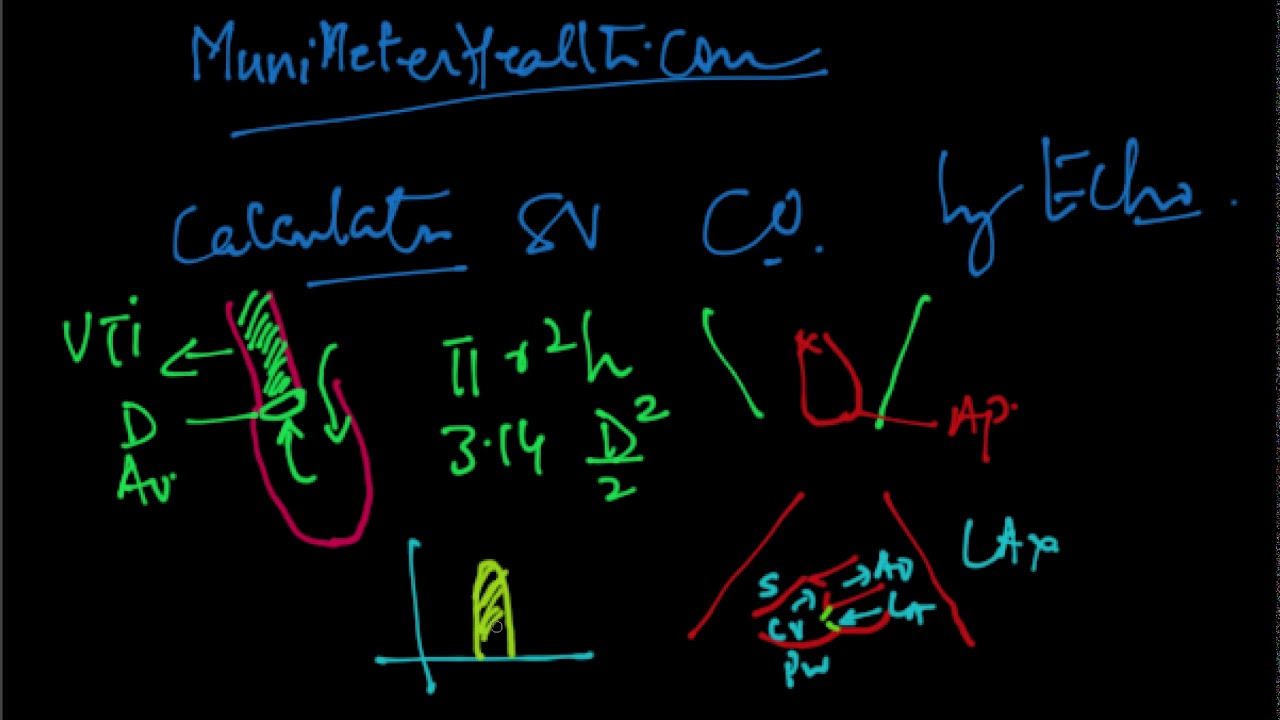 MuniMeterHealth.com
Calculatn SV CO. by Echo.
VTi
D
Av.
π r²h
3.14 D²/2
Ap.
LAx
S
Ao
LA
PW